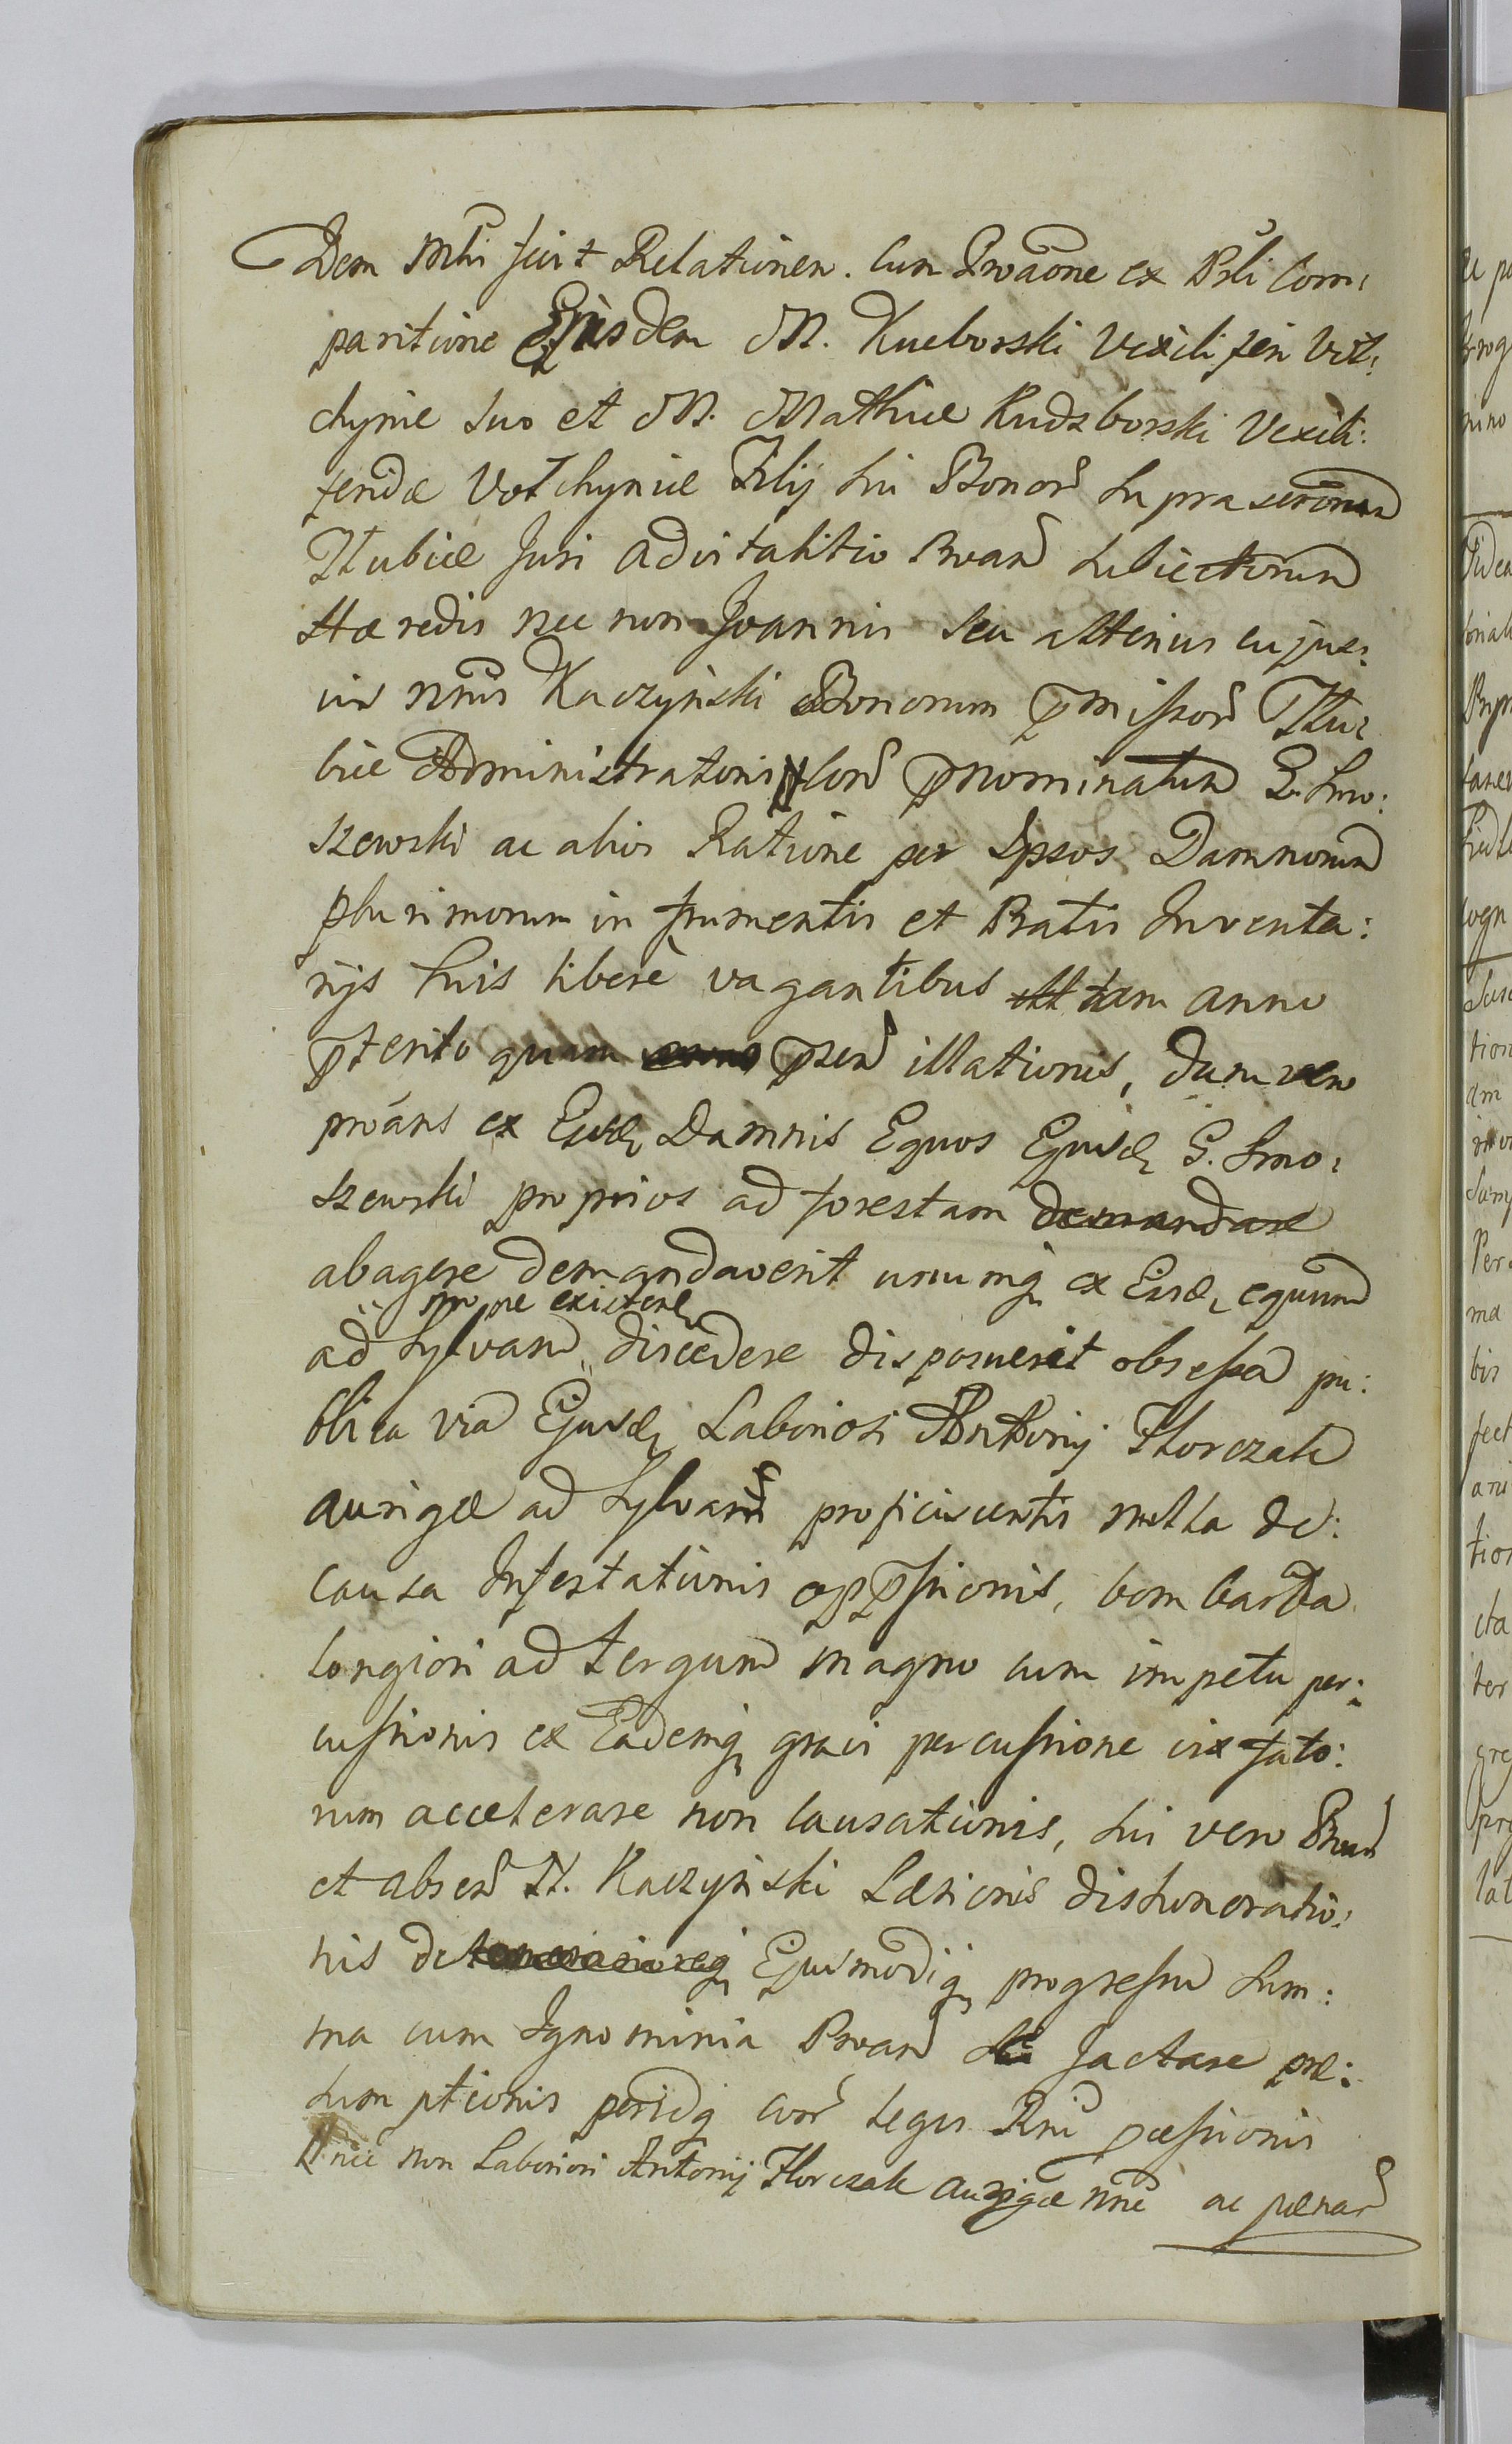 Idem Mtri fecit Relationem. Cum Prõaone ex Psli Com:
paritione Ejusdem M. Kueborski Vexiliferi Vit:
chyniæ suo et M. Mathiæ Rudzborski Vexili:
feridæ Votchyniæ Filij sui Bonorũ supra
Itubiæ Juri advitalitio Proañ subiectorum
Hæredis nec non Joannis seu alterius cujus:
vis nõnis Kaczyński Bonorum pmissorũ Ittu:
biæ Administratoris Corũ pnominatum G. Smo:
szewski ac alios Ratione per Ipsos Damnorum
plurimorum in frumentis et Pratis Inventa:
rijs suis libere vagantibus tam anno
pterito quam psen illationis, dum vero
proáns ex Eisdẽ Damnis Equos Ejusdẽ G. Smo:
szewski proprios ad forestam demandare
abagere demandaverit unumq ex Eisdẽ equum
more existen
ad Sylvam discedere disposuerit obsessa pu:
blica via Ejusdẽ Laboriosi Antonij Horczak
aurigæ ad Sylvam proficiscentis nulla de:
causa Infestationis oppssionis, bombarda
longiori ad tergum magno cum impetu per:
cussionis ex Eademq gravi percussione vix fato:
rum accelerare non causationis, sui vero Proañ
et absen N. Kaczyński Læsionis dishonoratio:
nis Ejusmodiq progressu sum:
ma cum Ignominia Proañ se Jactare præ:
sumptionis peridq corr legis Rni pæssionis
nec non Laboriosi Antonij Horczak aurigæ nne ac pænar